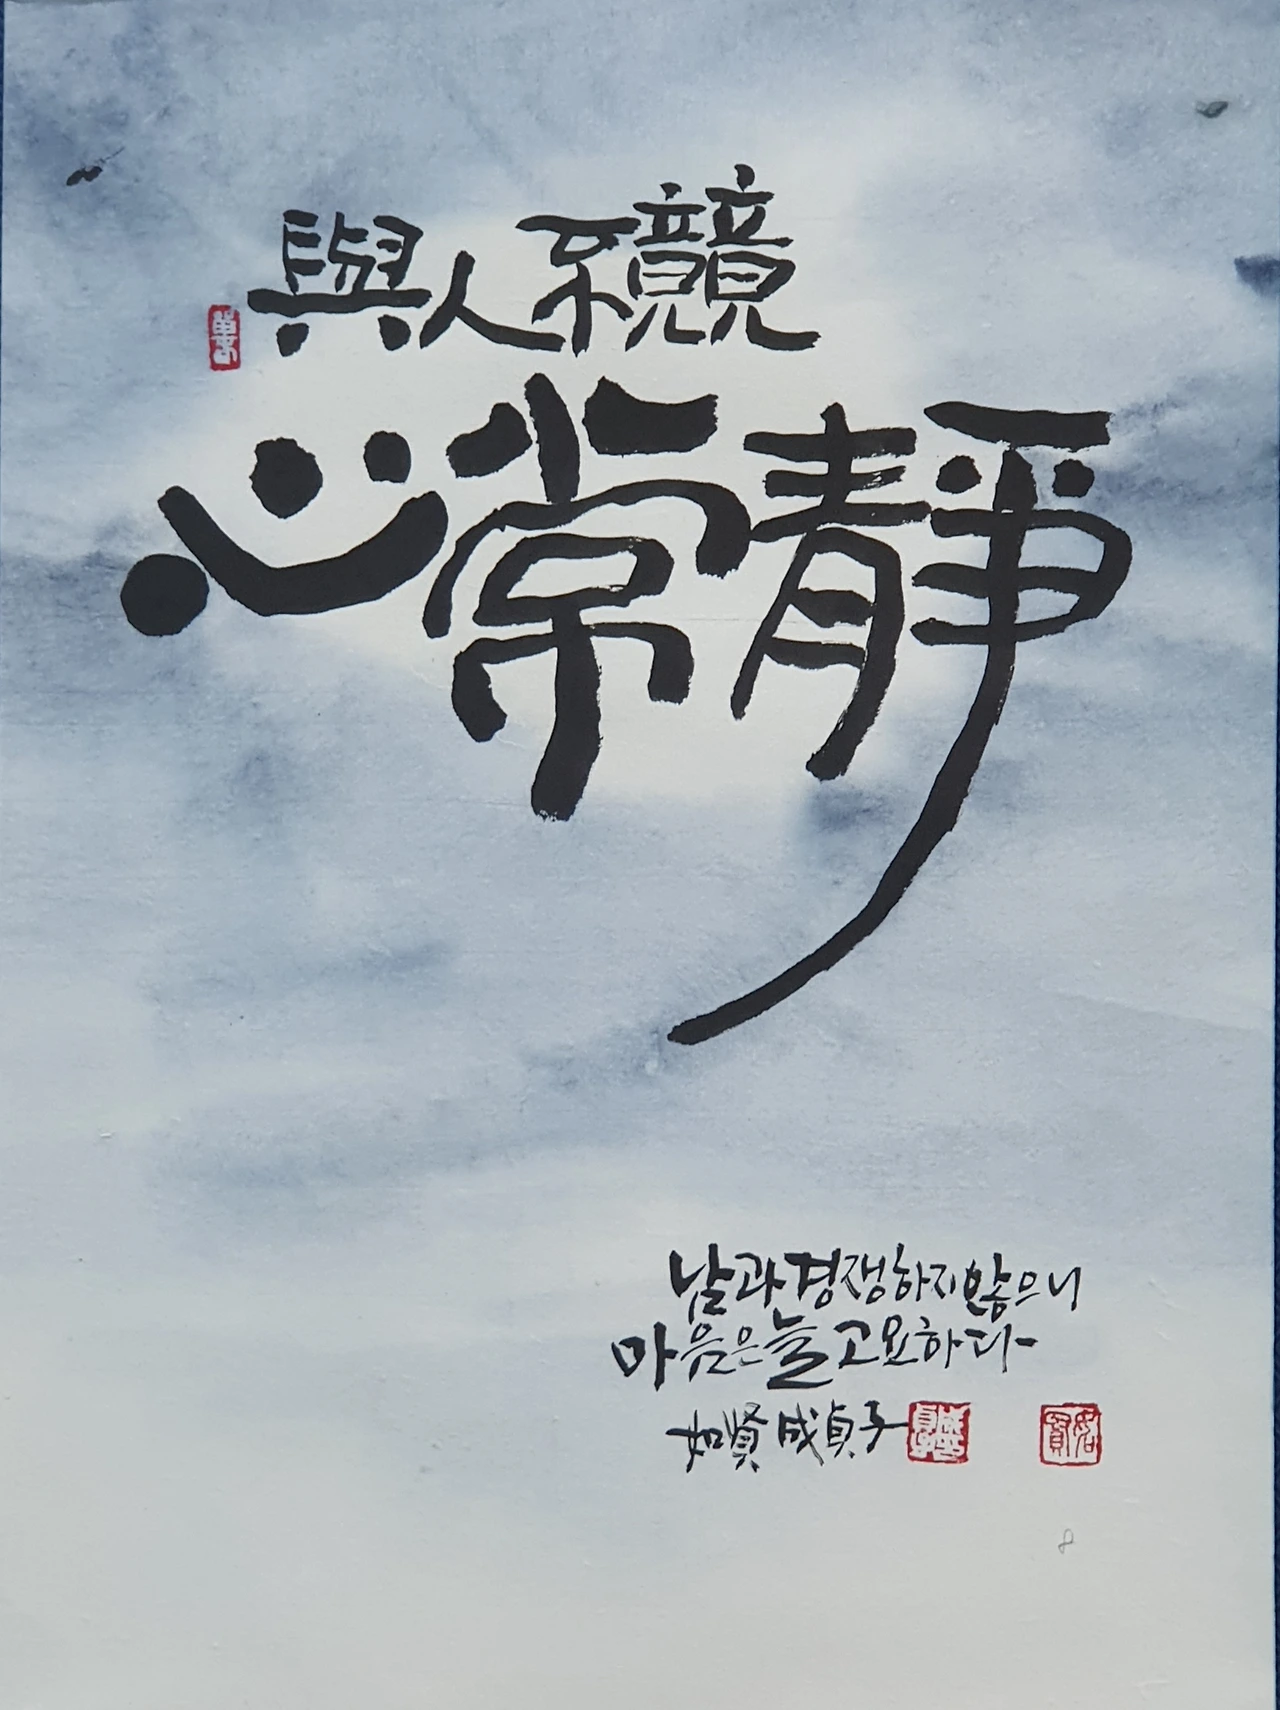 與人不競
心常靜
남과 경쟁하지 않으니
마음은 늘 고요하다
如賢 成貞子